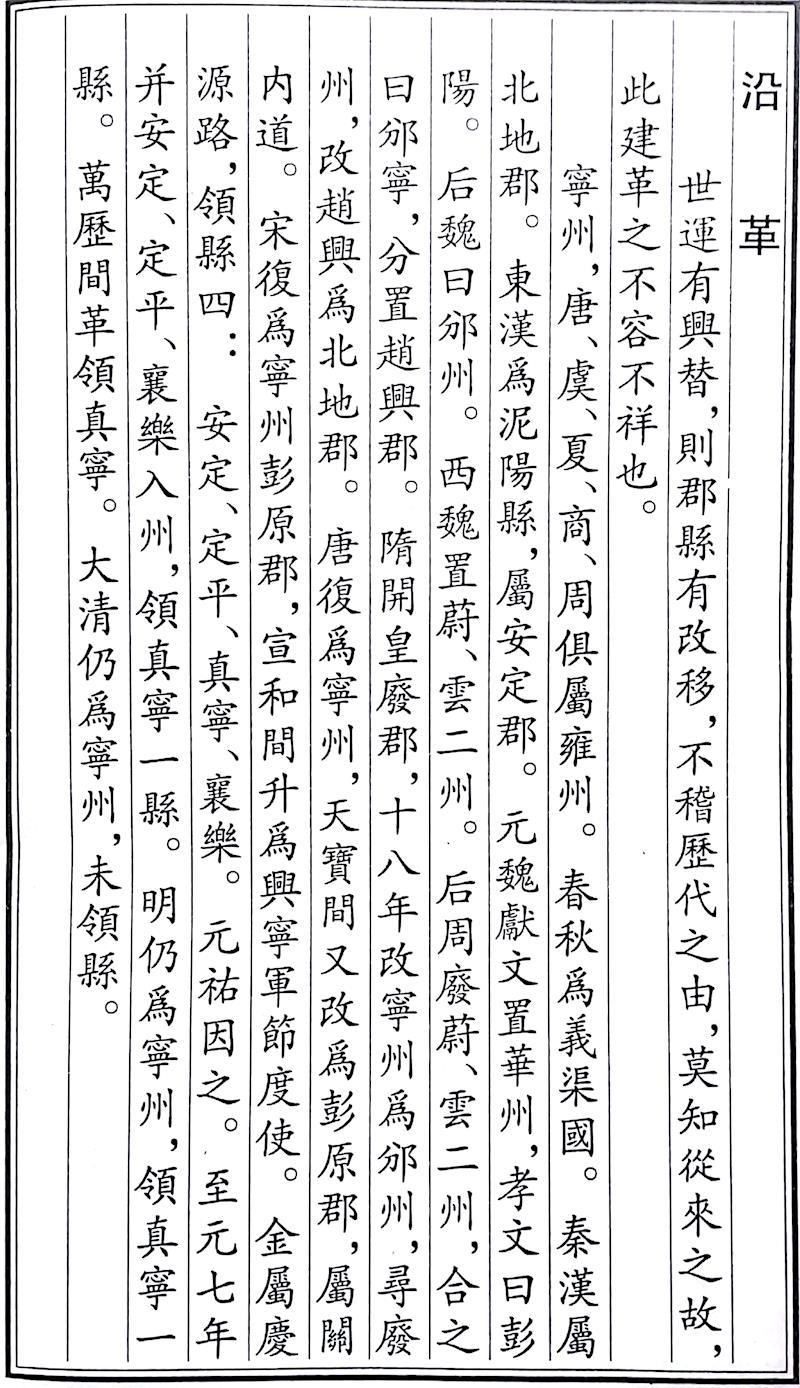 沿革
世運有興替，則郡縣有改移，不稽歷代之由，莫知從來之故，
此建革之不容不祥也。
寧州，唐、虞、夏、商、周俱屬雍州。春秋爲義渠國。秦漢屬
北地郡。東漢爲泥陽縣，屬安定郡。元魏獻文置華州，孝文曰彭
陽。后魏曰邠州。西魏置蔚、雲二州。后周廢蔚、雲二州，合之
曰邠寧，分置趙興郡。隋開皇廢郡，十八年改寧州爲邠州，尋廢
州，改趙興爲北地郡。唐復爲寧州，天寶間又改爲彭原郡，屬關
内道。宋復爲寧州彭原郡，宣和間升爲興寧軍節度使。金屬慶
源路，領縣四：安定、定平、真寧、襄樂。元祐因之。至元七年
并安定、定平、襄樂入州，領真寧一縣。明仍爲寧州，領真寧一
縣。萬歷間革領真寧。大清仍爲寧州，未領縣。